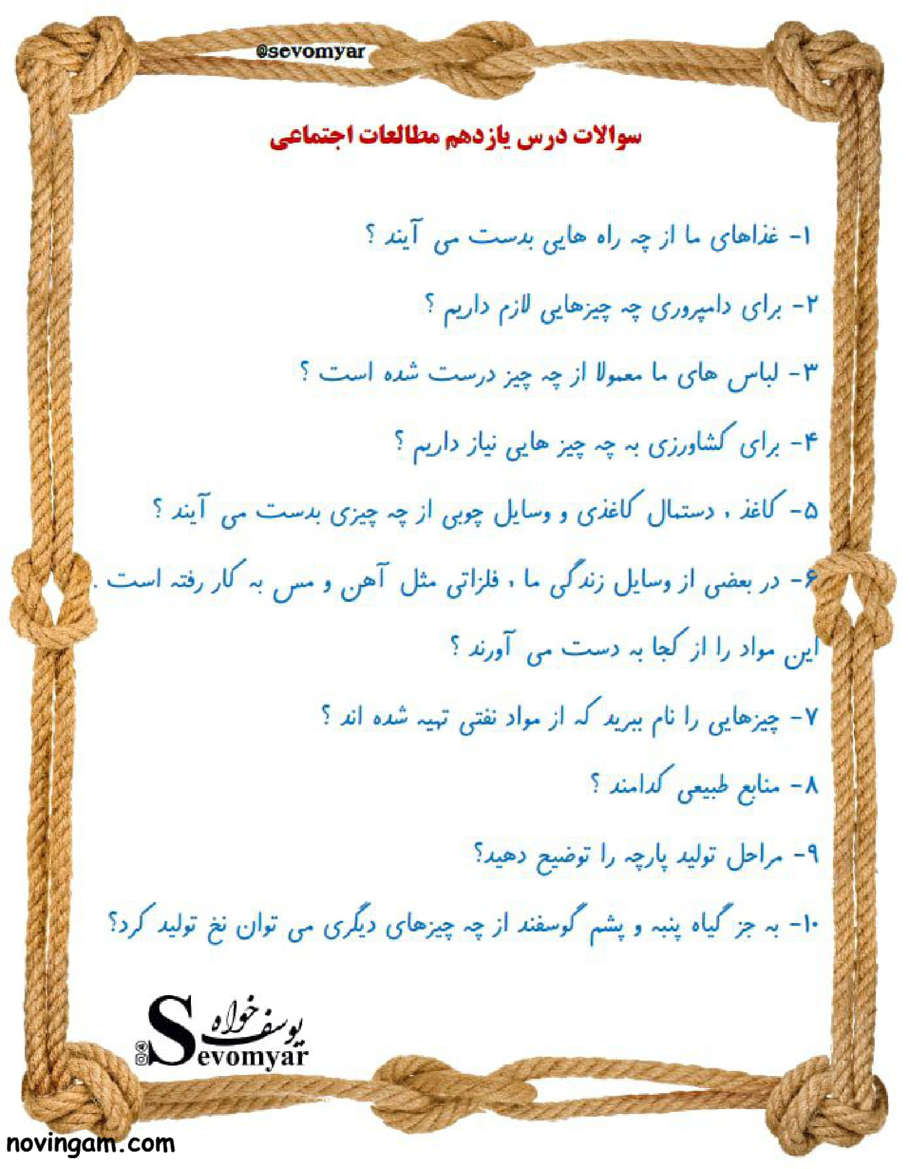 @sevomyar
سوالات درس یازدهم مطالعات اجتماعی
۱- غذاهای ما از چه راه هایی بدست می آیند ؟
۲- برای دامپروری چه چیزهایی لازم داریم ؟
۳- لباس های ما معمولا از چه چیز درست شده است ؟
۴- برای کشاورزی به چه چیز هایی نیاز داریم ؟
۵- کاغذ ، دستمال کاغذی و وسایل چوبی از چه چیزی بدست می آیند ؟
۶- در بعضی از وسایل زندگی ما ، فلزاتی مثل آهن و مس به کار رفته است .
این مواد را از کجا به دست می آورند ؟
۷- چیزهایی را نام ببرید که از مواد نفتی تهیه شده اند ؟
۸- منابع طبیعی کدامند ؟
۹- مراحل تولید پارچه را توضیح دهید؟
۱۰- به جز گیاه پنبه و پشم گوسفند از چه چیزهای دیگری می توان نخ تولید کرد؟
یوسف خواه
Sevomyar
novingam.com